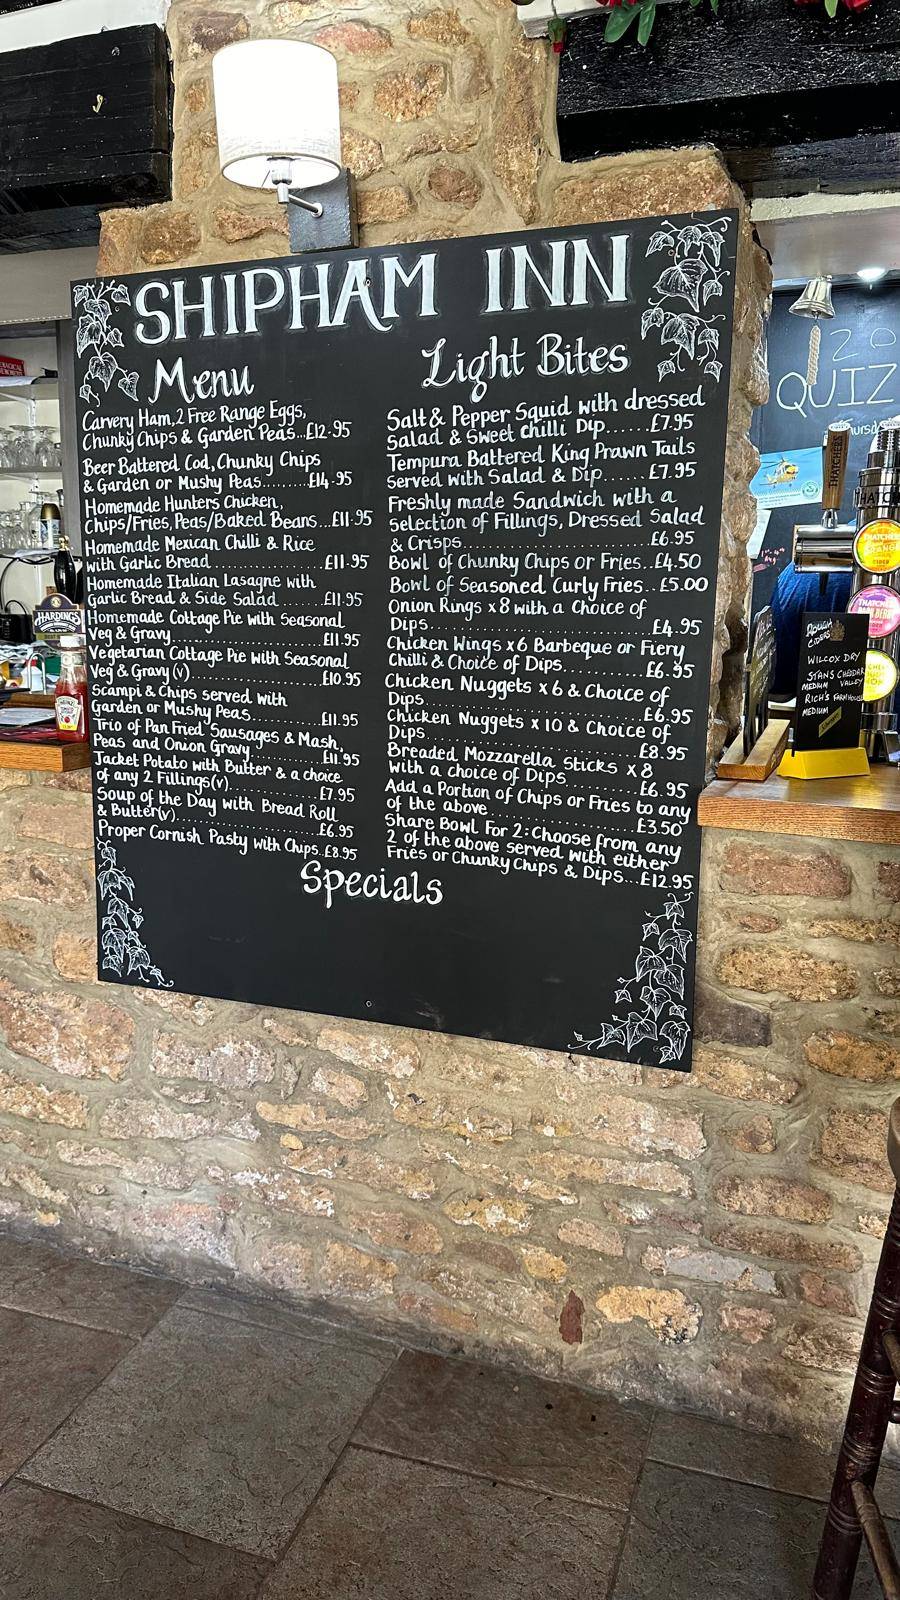 SHIPHAM INN
Menu
Carvery Ham, 2 Free Range Eggs,
Chunky Chips & Garden Peas...£12.95
Beer Battered Cod, Chunky Chips
& Garden or Mushy Peas.........£14.95
Homemade Hunters Chicken,
Chips/Fries, Peas/Baked Beans...£11.95
Homemade Mexican Chilli & Rice
with Garlic Bread......................£11.95
Homemade Italian Lasagne with
Garlic Bread & Side Salad.......£11.95
Homemade Cottage Pie with Seasonal
Veg & Gravy..........................£11.95
Vegetarian Cottage Pie with Seasonal
Veg & Gravy (v)......................£10.95
Scampi & Chips served with
Garden or Mushy Peas............£11.95
Trio of Pan Fried Sausages & Mash,
Peas and Onion Gravy............£11.95
Jacket Potato with Butter & a choice
of any 2 Fillings(v).................£7.95
Soup of the Day with Bread Roll
& Butter(v)...........................£6.95
Proper Cornish Pasty with Chips..£8.95
Light Bites
Salt & Pepper Squid with dressed
Salad & Sweet chilli Dip......£7.95
Tempura Battered King Prawn Tails
Served with Salad & Dip......£7.95
Freshly made Sandwich with a
Selection of Fillings, Dressed Salad
& Crisps..........................£6.95
Bowl of Chunky Chips or Fries..£4.50
Bowl of Seasoned Curly Fries..£5.00
Onion Rings x8 with a Choice of
Dips...............................£4.95
Chicken Wings x6 Barbeque or Fiery
Chilli & Choice of Dips...........£6.95
Chicken Nuggets x 6 & Choice of
Dips...............................£6.95
Chicken Nuggets x 10 & Choice of
Dips...............................£8.95
Breaded Mozzarella Sticks x 8
With a choice of Dips..........£6.95
Add a Portion of Chips or Fries to any
of the above.....................£3.50
Share Bowl For 2: Choose from any
2 of the above served with either
Fries or Chunky Chips & Dips...£12.95
Specials
QUIZ
THATCHERS
HARDINGS
HEINZ
ROUGH
CIDERS
WILCOX DRY
STANS CHEDDAR
MEDIUM VALLEY
RICH'S FARMHOUSE
MEDIUM